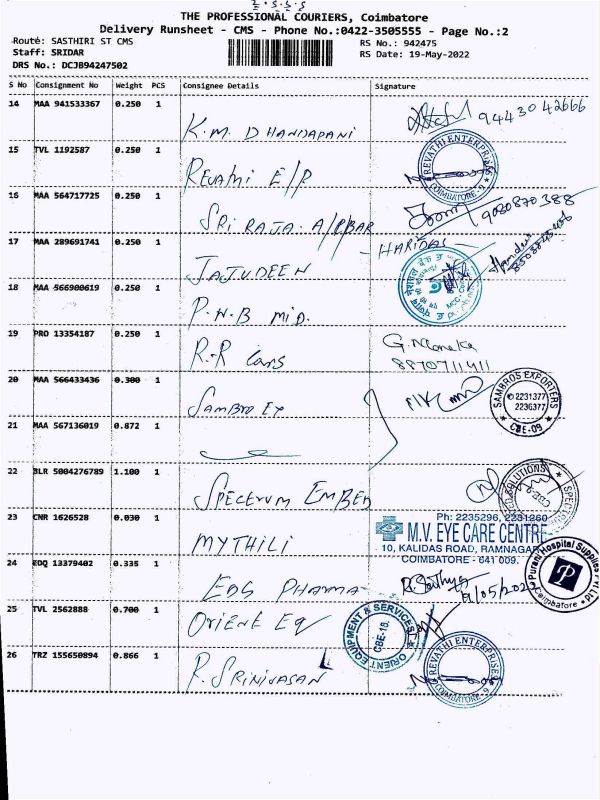 THE PROFESSIONAL COURIERS, Coimbatore
Delivery Runsheet - CMS - Phone No.:0422-3505555 - Page No.:2
Route: SASTHIRI ST CMS
Staff: SRIDAR
DRS No.: DCJB94247502
RS No.: 942475
RS Date: 19-May-2022
S No Consignment No Weight PCS Consignee Details Signature
14 MAA 941533367 0.250 1 K.M. DHANDAPANI 9443042666
15 TVL 1192587 0.250 1 REVATHI E/P
REVATHI ENTERPRISES
COIMBATORE - 9
16 MAA 564717725 0.250 1 SRI RAJA. A/P/BAR 9080870388
17 MAA 289691741 0.250 1 JAJUDEEN - HARIDAS -
18 MAA 566900619 0.250 1 P.N.B MID.
19 PRO 13354187 0.250 1 R.R Cars
8870711411
20 MAA 566433436 0.300 1 SAMBRO EX
SAMBROS EXPORTERS
2231377
2236377
CBE-09
21 MAA 567136019 0.872 1
22 BLR 5004276789 1.100 1 SPECTRUM EMBED
SOLUTIONS
23 CNR 1626528 0.030 1 MYTHILI
Ph: 2235296, 2231260
M.V. EYE CARE CENTRE
10, KALIDAS ROAD, RAMNAGAR
COIMBATORE - 641 009.
24 EDQ 13379402 0.335 1 EDS PHARMA
Purani Hospital Supplies Pvt Ltd
P
Coimbatore
25 TVL 2562888 0.700 1 ORIENT EQ
ORIENT EQUIPMENT & SERVICES
CBE-18.
26 TRZ 155650894 0.866 1 R. SRINIVASAN
REVATHI ENTERPRISES
COIMBATORE - 9